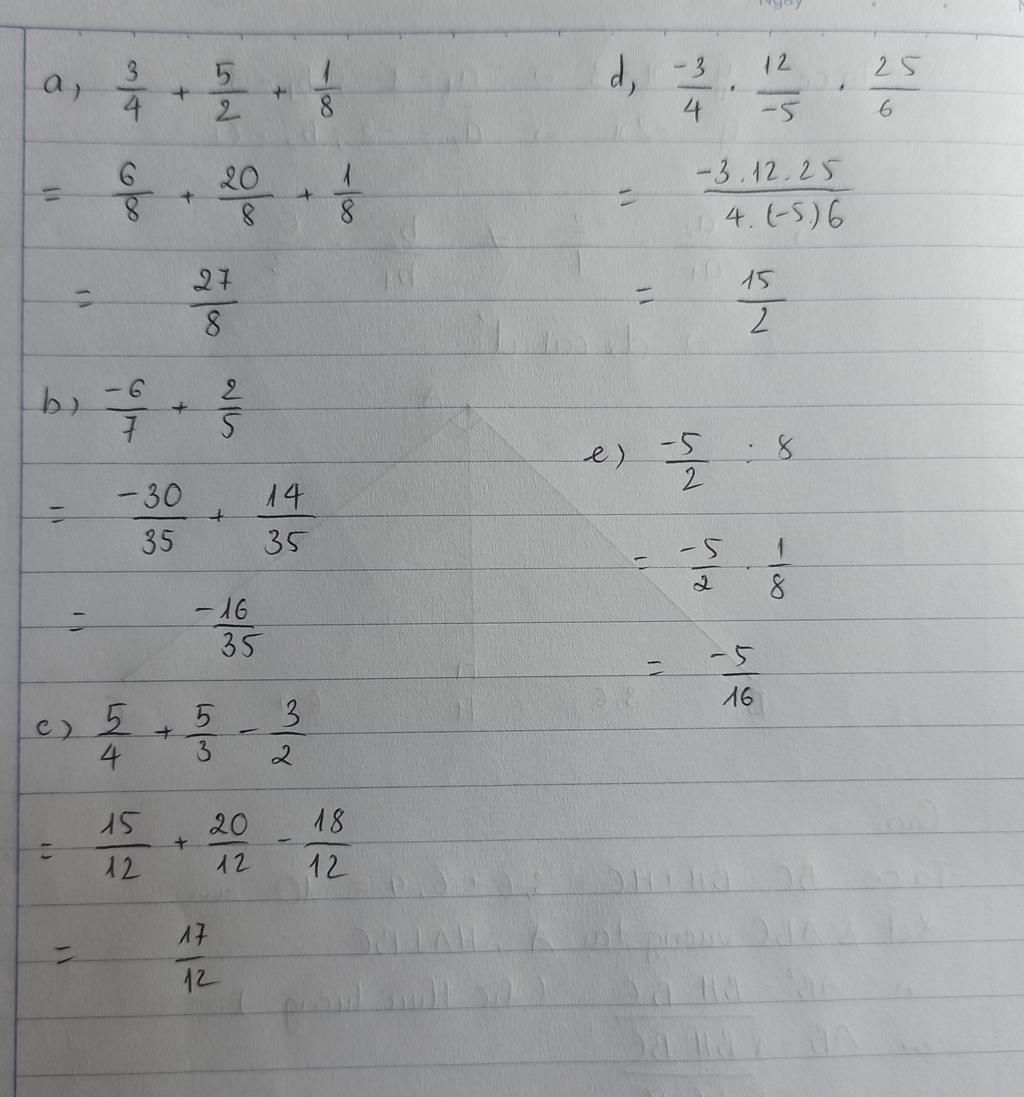 Ngày
a, 3/4 + 5/2 + 1/8
= 6/8 + 20/8 + 1/8
= 27/8
b) -6/7 + 2/5
= -30/35 + 14/35
= -16/35
c) 5/4 + 5/3 - 3/2
= 15/12 + 20/12 - 18/12
= 17/12
d, -3/4 . 12/-5 . 25/6
= -3.12.25/4.(-5.)6
= 15/2
e) -5/2 : 8
= -5/2 . 1/8
= -5/16